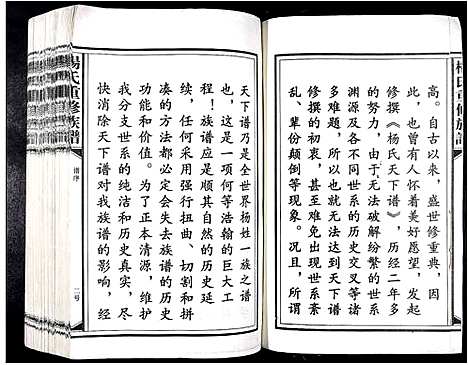 楊氏重修族譜
高。自古以来，盛世修重典，因
此，也曾有人怀着美好愿望，发起
修撰《杨氏天下谱》，历经二年多
时间，但由于无法破解纷繁的世系
渊源及各不同世系的历史交叉等诸
多难题，所以也就无法达到天下谱
修撰的初衷，甚至难免出现世系紊
乱、辈份颠倒等现象。况且，所谓
天下谱乃是全世界杨姓一族之谱
也，这是一项何等浩翰的巨大工
程！族谱应是顺其自然的历史延
续，任何采用强行扭曲、切割和拼
凑的方法都必定会失去族谱的历史
功能和价值。为了正本清源，维护
我分支世系的纯洁和历史真实，尽
快消除天下谱对我族谱的影响，经
楊氏重修族譜
谱序
二号